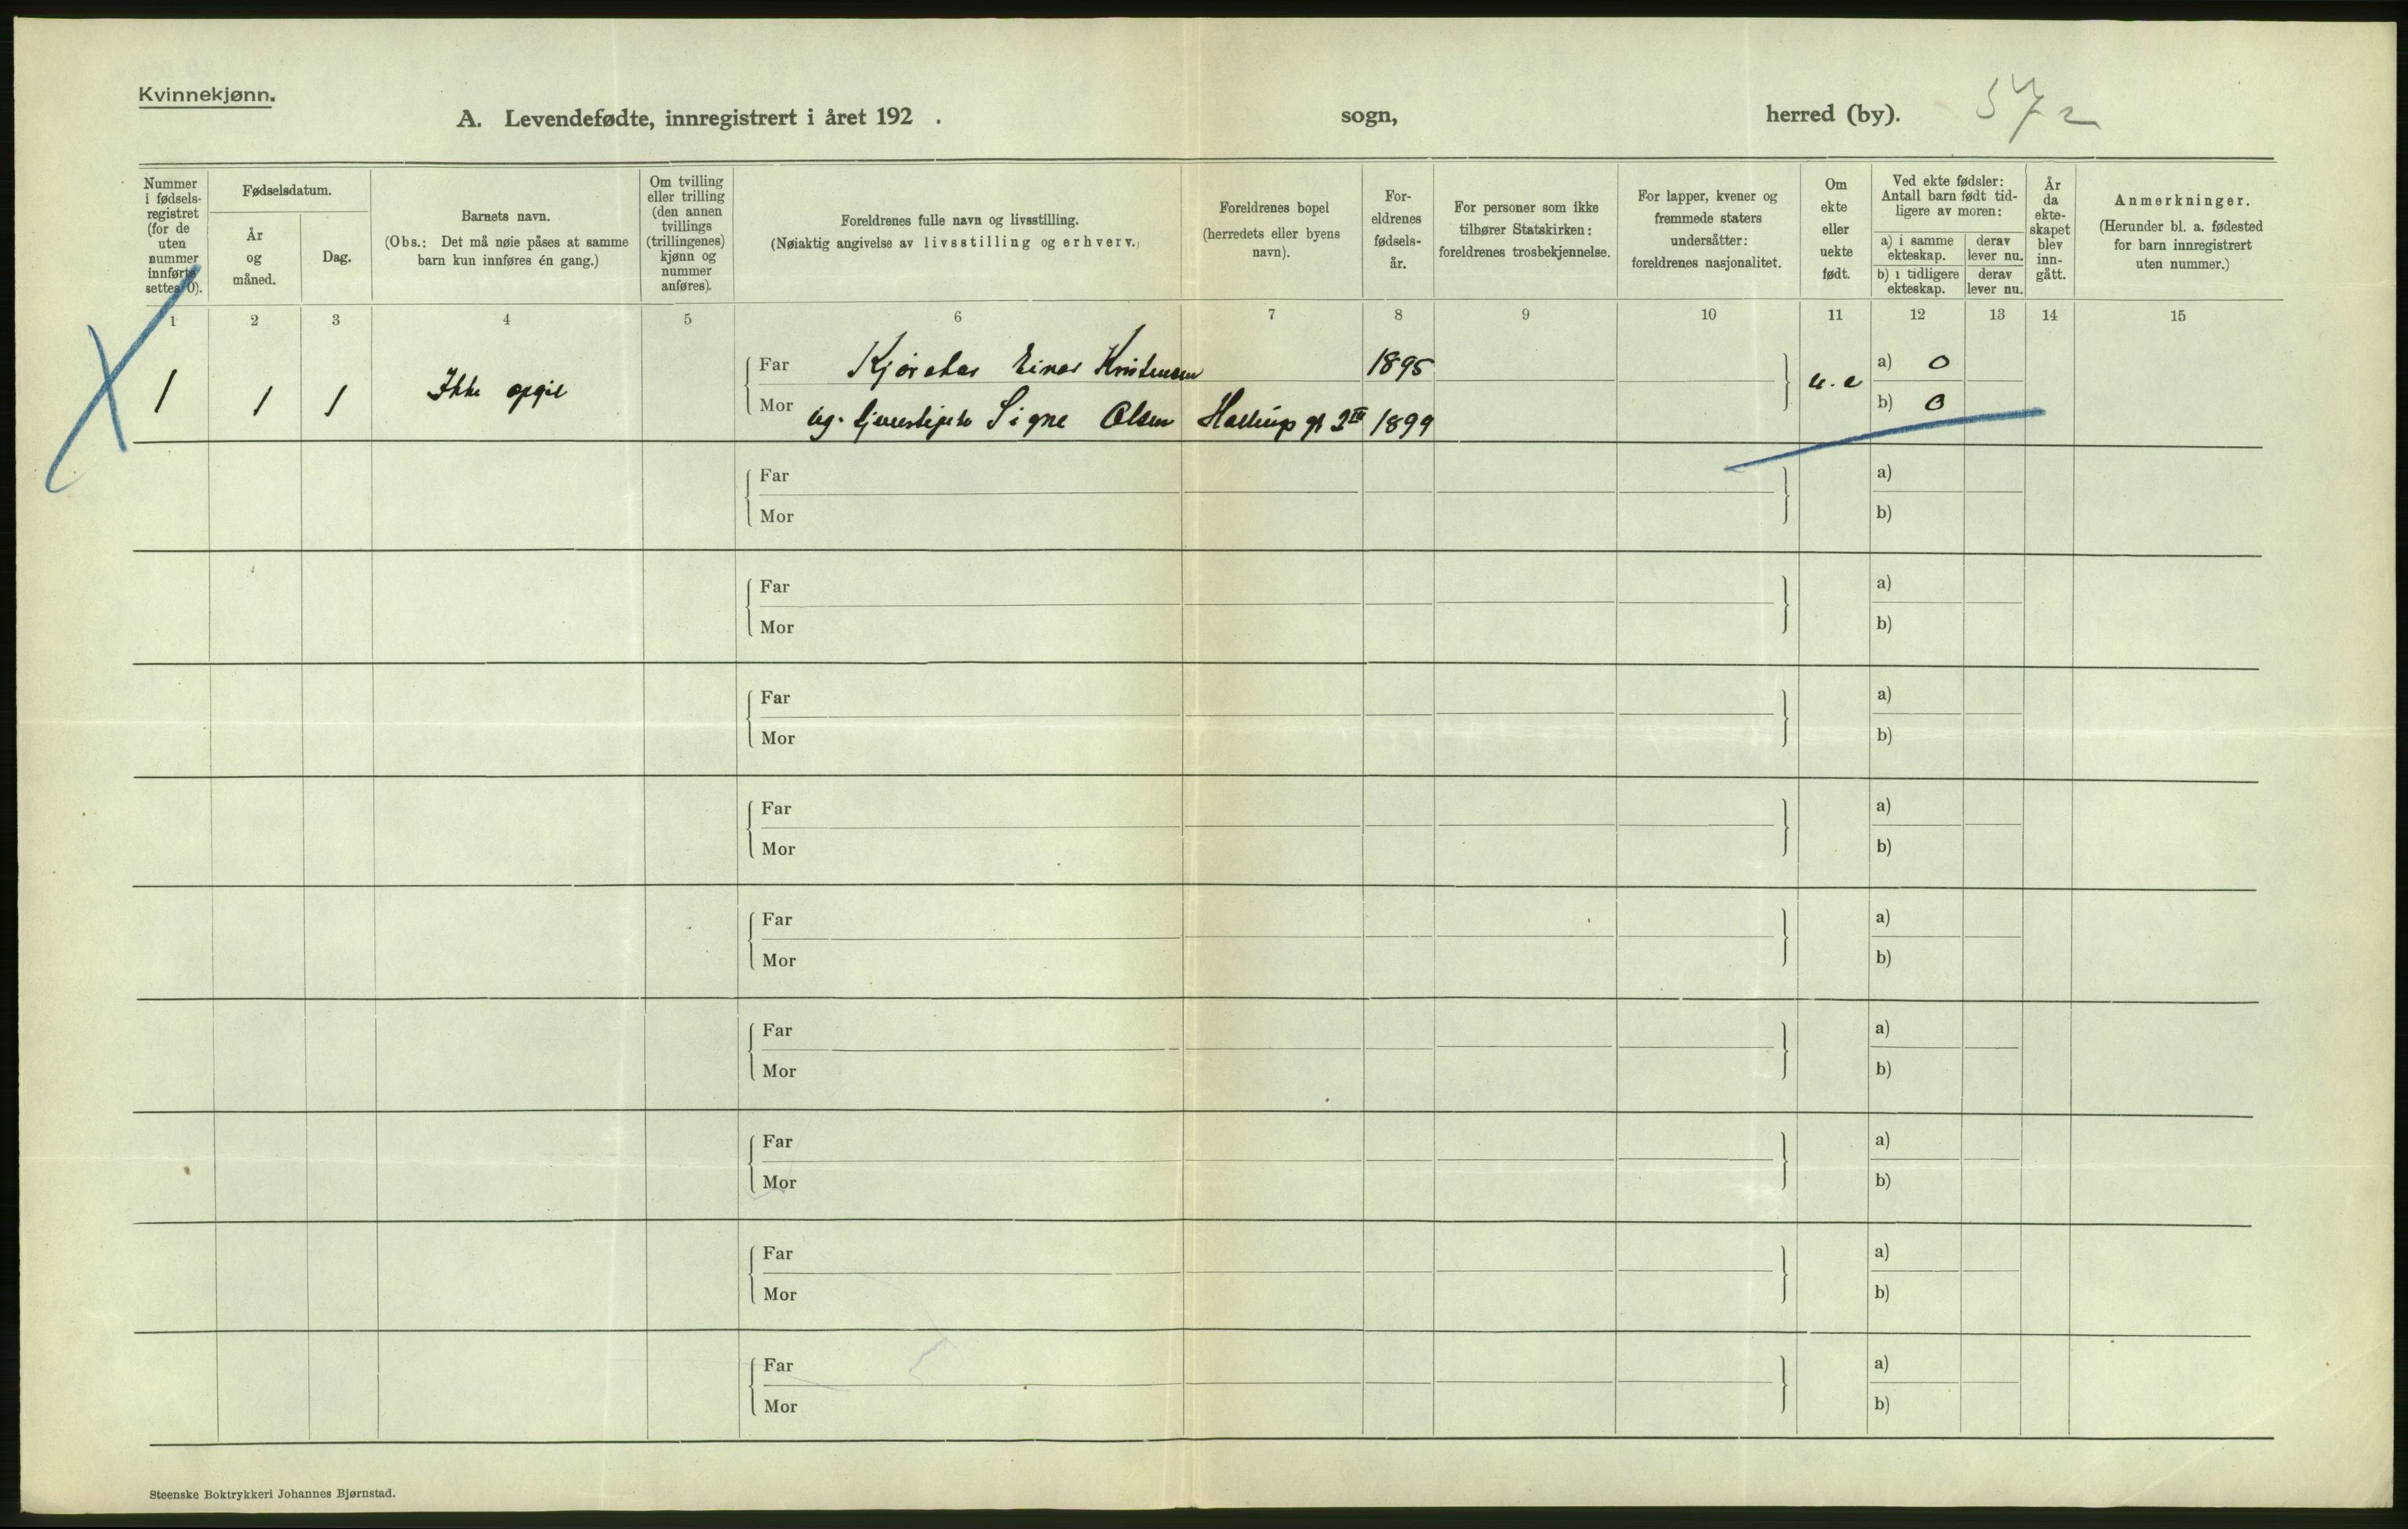 Kvinnekjønn.
A. Levendefødte, innregistrert i året 192 . sogn, herred (by). 572
Nummer i fødsels-registret (for de uten nummer innførte settes 0).
Fødselsdatum.
År og måned.
Dag.
Barnets navn.
(Obs.: Det må nøie påses at samme barn kun innføres én gang.)
Om tvilling eller trilling (den annen tvillings (trillingenes) kjønn og nummer anføres).
Foreldrenes fulle navn og livsstilling.
(Nøiaktig angivelse av livsstilling og erhverv.)
Foreldrenes bopel (herredets eller byens navn).
For-eldrenes fødsels-år.
For personer som ikke tilhører Statskirken: foreldrenes trosbekjennelse.
For lapper, kvener og fremmede staters undersåtter: foreldrenes nasjonalitet.
Om ekte eller uekte født.
Ved ekte fødsler: Antall barn født tid-ligere av moren:
a) i samme ekteskap.
derav lever nu.
b) i tidligere ekteskap.
derav lever nu.
År da ekte-skapet blev inn-gått.
Anmerkninger.
(Herunder bl. a. fødested for barn innregistrert uten nummer.)
1 2 3 4 5 6 7 8 9 10 11 12 13 14 15
Far Einar Kristensen 1895 a) 0
1 1 1 Ikke opgit u. e
Mor ug. Signe Olsen gt 2 III 1899 b) 0
Far a)
Mor b)
Far a)
Mor b)
Far a)
Mor b)
Far a)
Mor b)
Far a)
Mor b)
Far a)
Mor b)
Far a)
Mor b)
Far a)
Mor b)
Far a)
Mor b)
Steenske Boktrykkeri Johannes Bjørnstad.